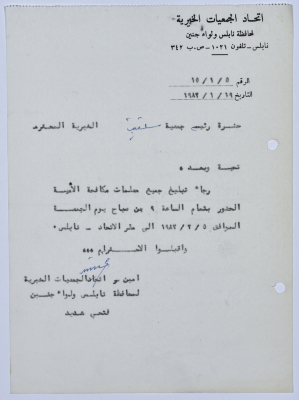 اتحاد الجمعيات الخيرية
لمحافظة نابلس ولواء جنين
نابلس - تلفون ١٠٢١ - ص.ب ٣٤٢
الرقم ١٥/١/٥
التاريخ ١٩/١/١٩٨٢
حضرة رئيس جمعية سلفيت الخيرية المحترم
تحية وبعد ،
رجاء تبليغ جميع معلمات مكافحة الأمية
الحضور بتمام الساعة ٩ من صباح يوم الجمعة
الموافق ٥/٢/١٩٨٢ الى مقر الاتحاد - نابلس.
واقبلوا الاحترام ،،،
امين سر اتحاد الجمعيات الخيرية
لمحافظة نابلس ولواء جنين
فتحي